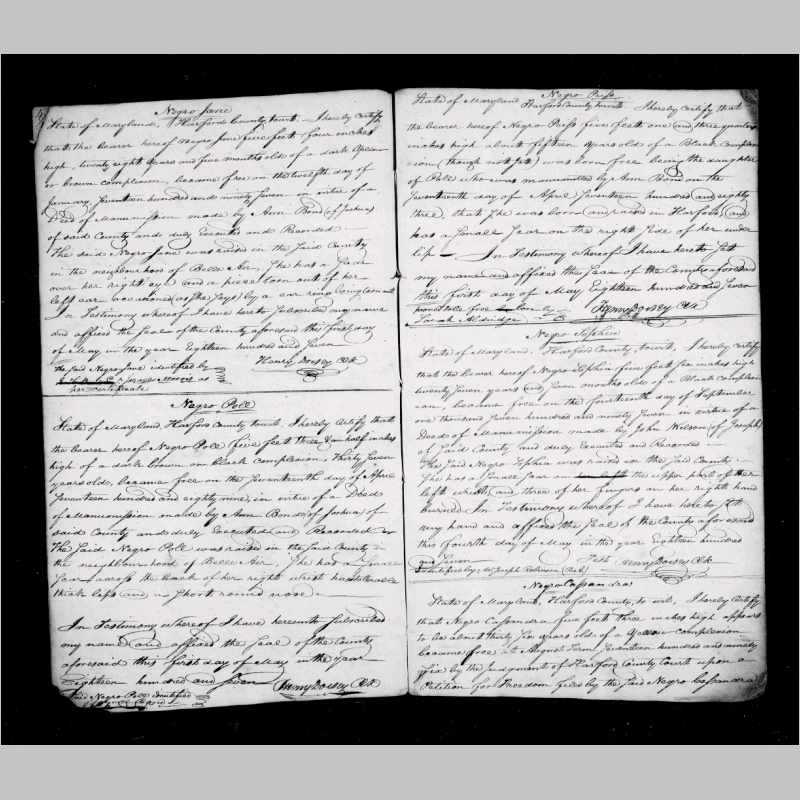 Negro Jane
State of Maryland, Harford County court. I hereby Certify
that the bearer hereof negro Jane five feet four inches
high, twenty eight years and five months old of a dark
or brown complexion, became free on the twelfth day of
January Seventeen hundred and ninety Seven in virtue of a
Deed of Manumission made by Ann Bond (of Joshua)
of said County and duly Executed and Recorded —
The said Negro Jane was raised in the Said County
in the neighbourhood of Belle Air, She has a Scar
over her right eye and a piece torn out of her
left ear occasioned (as she Says) by a ear ring
In Testimony whereof I have hereto Subscribed my name
and affixed the Seal of the County aforesaid this first day
of May in the year Eighteen hundred and Seven
Henry Dorsey Clk
the said Negro Jane identified by
as
her certificate
Negro Poll
State of Maryland, Harford County court. I hereby Certify that
the bearer hereof Negro Poll five feet three & an half inches
high of a dark brown or black complexion, thirty Seven
years old, became free on the Seventeenth day of April
Seventeen hundred and eighty nine, in virtue of a Deed
of Manumission made by Ann Bond (of Joshua) of
said County and duly Executed and Recorded
The Said Negro Poll was raised in the Said County in
the neighbourhood of Belle Air, She has a Small
Scar across the back of her right wrist has
thick lips and a Short round nose —
In Testimony whereof I have hereunto Subscribed
my name and affixed the Seal of the County
aforesaid this first day of May in the year
Eighteen hundred and Seven Henry Dorsey Clk
Said Negro Poll identified
by
Negro Priss
State of Maryland Harford County court I hereby Certify that
the bearer hereof Negro Priss five feet one and three quarters
inches high about fifteen years old of a Black Complex
sion (though not jet) was born free being the daughter
of Poll who was manumitted by Ann Bond on the
Seventeenth day of April Seventeen hundred and eighty
three, that She was born and raised in Harford, and
has a Small Scar on the right Side of her under
lip — In Testimony whereof I have hereto Set
my name and affixed the Seal of the County aforesaid
this first day of May Eighteen hundred and Seven
Henry Dorsey Clk
Sarah Aldridge
Negro Sophia
State of Maryland, Harford County, court, I hereby Certify
that the bearer hereof Negro Sophia five feet Six inches high
twenty Seven years and Seven months old of a Black Complexion
became free on the fourteenth day of September
one thousand Seven hundred and ninety Seven in virtue of a
Deed of Manumission made by John Wilson (of Joseph)
of Said County and duly Executed and Recorded —
The Said Negro Sophia was raised in the Said County —
She has a Small Scar on her left the upper part of her
left wrist and three of her fingers on her right hand
burned In Testimony whereof I have hereto Set
my hand and affixed the Seal of the County aforesaid
this fourth day of May in the year Eighteen hundred
and Seven Test Henry Dorsey Clk
Identified by Joseph Robinson
Negro Cassandra
State of Maryland, Harford County, to wit, I hereby Certify
that Negro Cassandra five feet three inches high appears
to be about thirty Six years old of a yellow complexion
became free at August Term Seventeen hundred and ninety
Six by the Judgment of Harford County Court upon a
Petition for Freedom filed by the Said Negro Cassandra